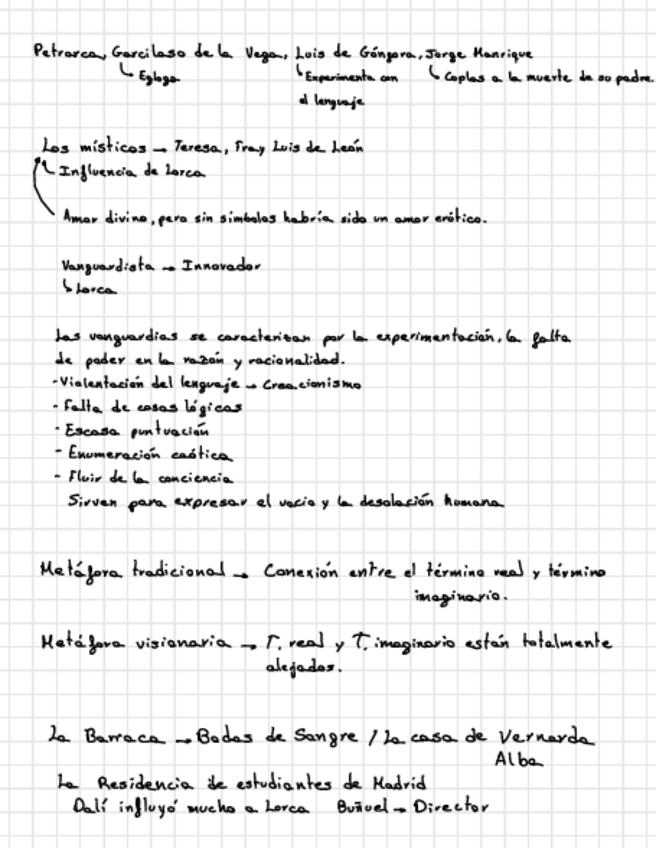 Petrarca, Garcilaso de la Vega, Luis de Góngora, Jorge Manrique
↳ Egloga ↳ Experimenta con ↳ Coplas a la muerte de su padre.
el lenguaje
Los místicos → Teresa, Fray Luis de León
↳ Influencia de Lorca
Amor divino, pero sin símbolos habría sido un amor erótico.
Vanguardista → Innovador
↳ Lorca
Las vanguardias se caracterizan por la experimentación, la falta
de poder en la razón y racionalidad.
- Violentación del lenguaje → Creacionismo
- Falta de cosas lógicas
- Escasa puntuación
- Enumeración caótica
- Fluir de la conciencia
Sirven para expresar el vacío y la desolación humana
Metáfora tradicional → Conexión entre el término real y término
imaginario.
Metáfora visionaria → T. real y T. imaginario están totalmente
alejados.
La Barraca → Bodas de Sangre / La casa de Vernarda
Alba
La Residencia de estudiantes de Madrid
Dalí influyó mucho a Lorca Buñuel → Director